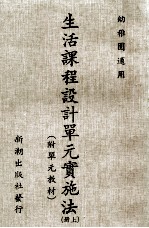 幼稚園適用
生活課程設計單元實施法(上冊)
(附單元教材)
新潮出版社發行